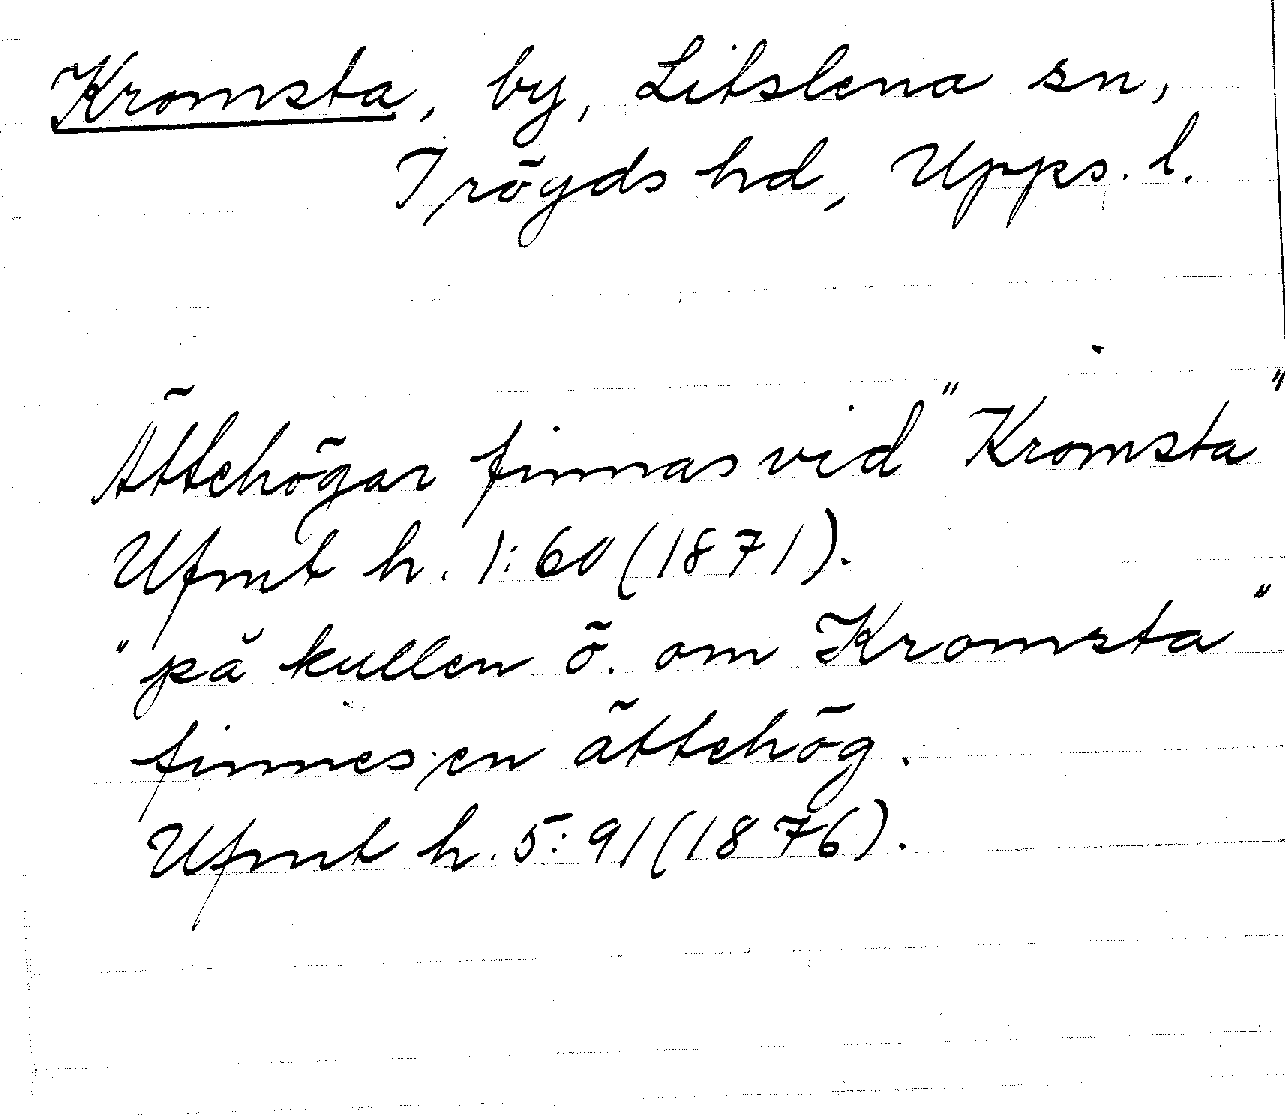 Kromsta, by, Litslena sn,
Trögds hd, Upps. l.
Ättehögar finnas vid "Kromsta"
Ufmt h. 1:60 (1871).
"på kullen ö. om Kromsta"
finnes en ättehög.
Ufmt h. 5:91 (1876).